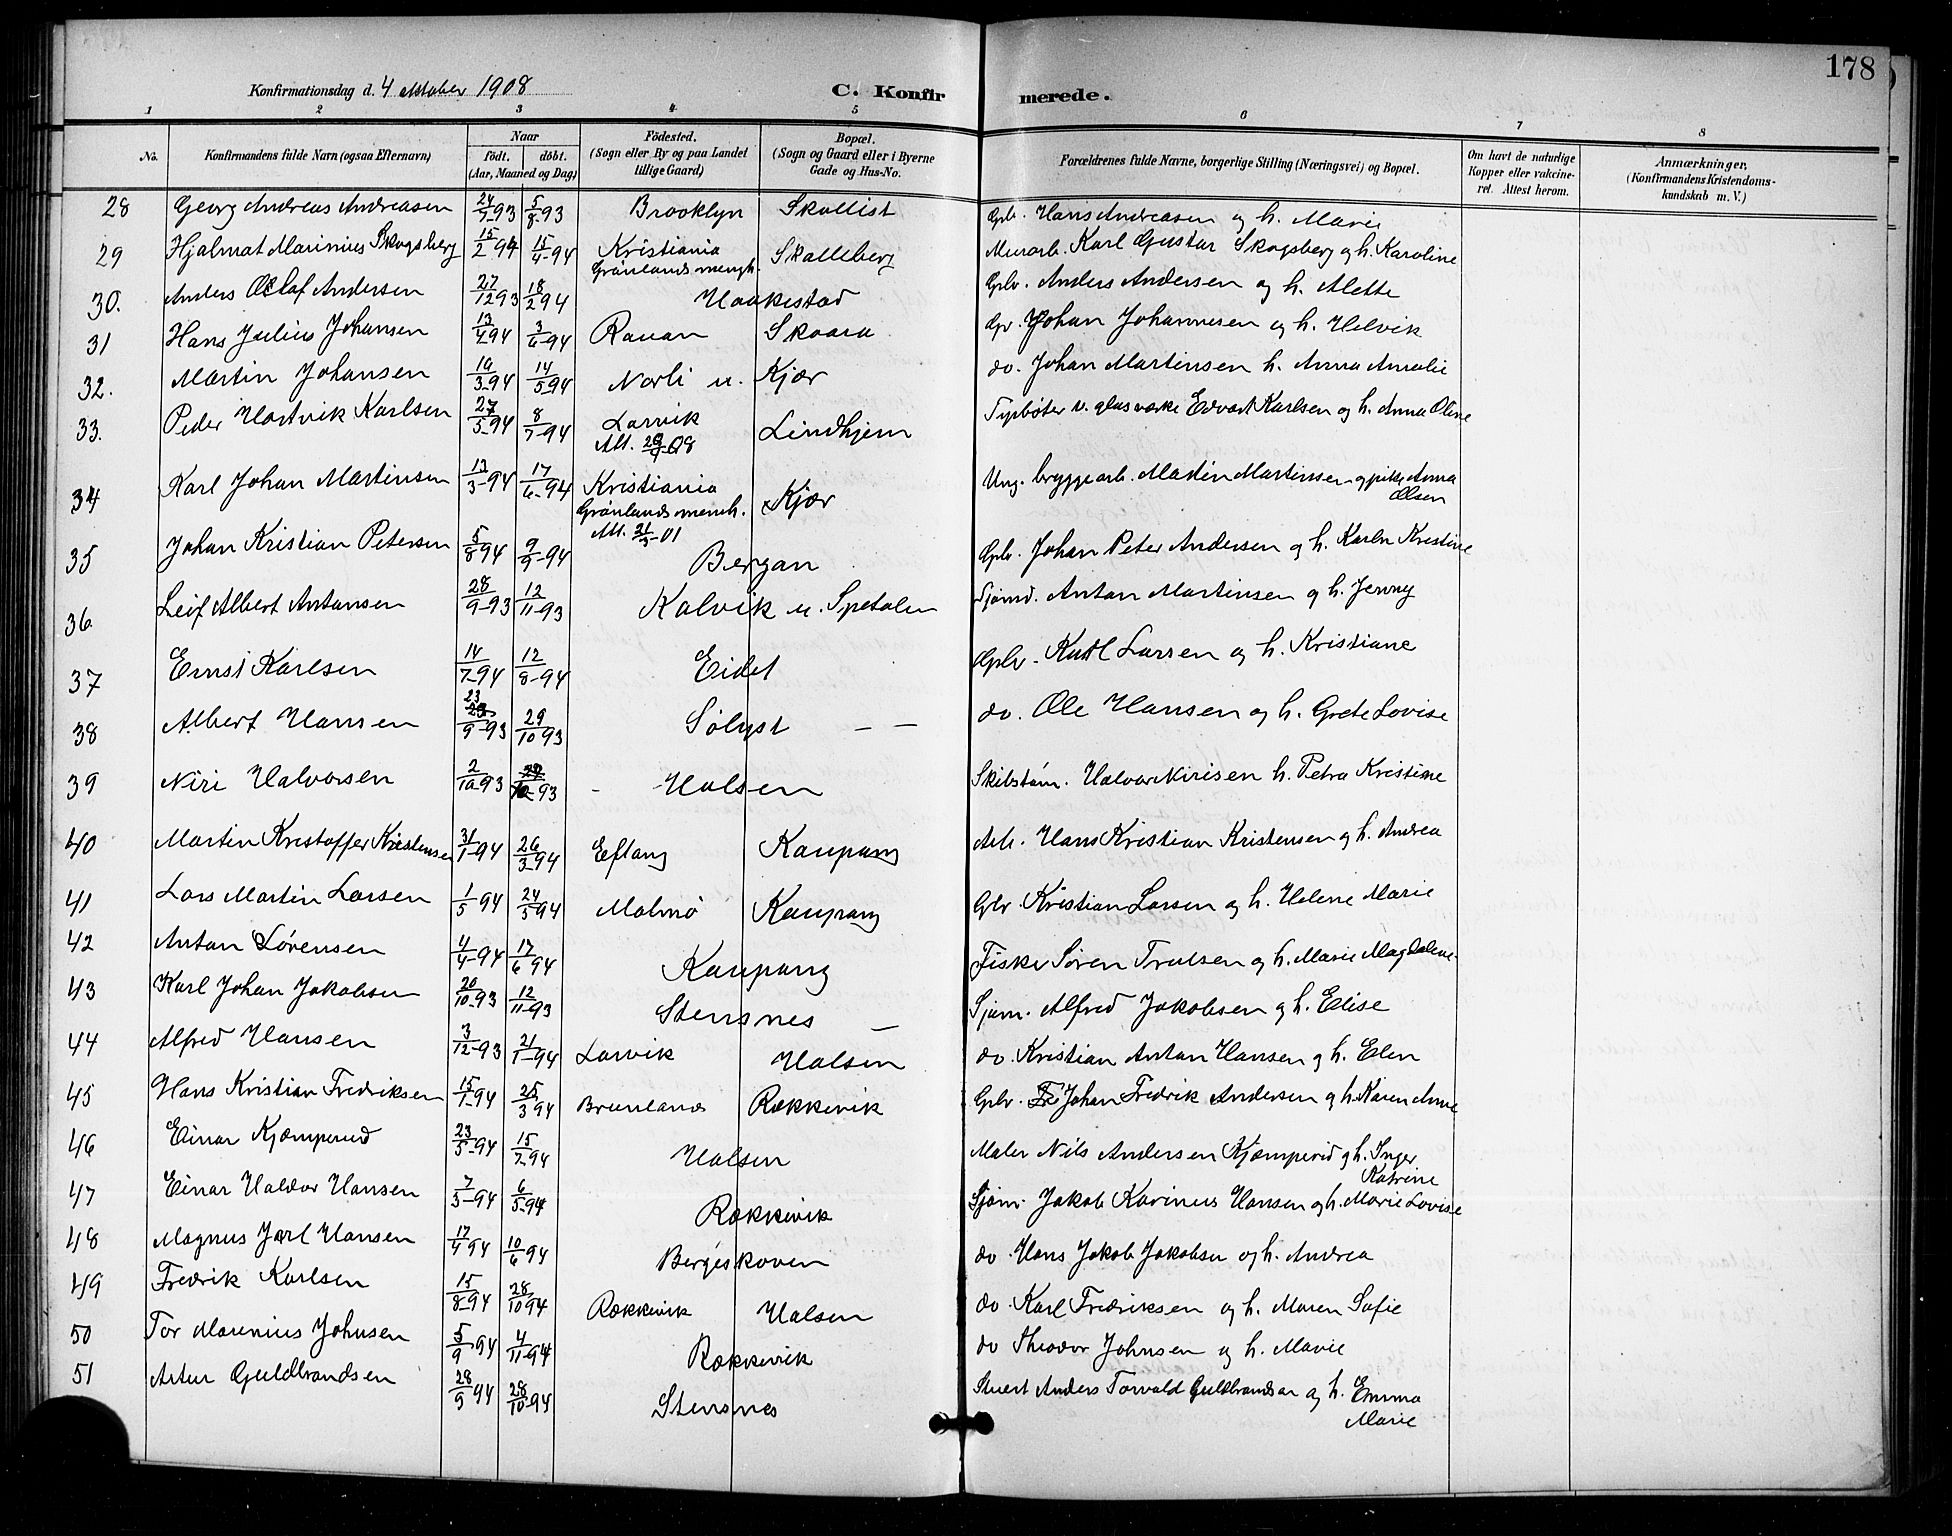 178
Konfirmationsdag d. 4 oktober 1908
C. Konfirmerede.
1 2 3 4 5 6 7 8
No. | Konfirmandens fulde Navn (ogsaa Efternavn) | Naar født. døbt. (Aar, Maaned og Dag) | Fødested. (Sogn eller By og paa Landet tillige Gaard) | Bopæl. (Sogn og Gaard eller i Byerne Gade og Hus-No. | Forældrenes fulde Navne, borgerlige Stilling (Næringsvei) og Bopæl. | Om havt de naturlige Kopper eller vakcineret. Attest herom. | Anmærkninger, (Konfirmandens Kristendomskundskab m. V.)
28 Georg Andreas Andreasen 24/7-93 5/8-93 Brooklyn Skollist Gbr. Hans Andreasen og h. Marie
29 Hjalmat Marinius Skogsberg 15/2 94 15/4-94 Kristiania Grønlands mengh. Skalleberg Murarb. Karl Gustav Skogsberg og h. Karoline
30. Anders Olaf Andersen 27/12 93 18/2 94 Haakestad Gbr. Anders Andersen og h. Alette
31 Hans Julius Johansen 13/4 94 3/6-94 Rauan Skaara Gbr. Johan Johannesen og h. Helvik
32. Martin Johansen 19/3-94 14/5 94 Norli u. Kjær do. Johan Martinsen h. Anna Amalie
33. Peder Hartvik Karlsen 27/5-94 8/7-94 Larvik Att. 29/9-08 Lindhjem v. glasværke Edvart Karlsen og h. Anna Oline
34 Karl Johan Martinsen 13/3-94 17/6-94 Kristiania Grønlands menh. Att. 21/5-01 Kjær Ung. bryggearb. Martin Martinsen og pike Anna Olsen
35 Johan Kristian Petersen 5/8 94 9/9-94 Bergan Gbr. Johan Peter Andersen og h. Karen Kristine
36 Leif Albert Antonsen 28/9-93 12/11-93 Kalvik u. Spetalen Sjømd. Anton Martinsen og h. Jenny
37 Ernst Karlsen 14/7-94 12/8-94 Eidet Gbr. Karl Larsen og h. Kristiane
38 Albert Hansen 23/9-93 29/10 93 Sølyst — — do. Ole Hansen og h. Grete Lovise
39 Niri Halvorsen 2/10-93 -93 - Halsen Skibstøm. Halvor Nirisen h. Petra Kristine
40 Martin Kristoffer Kristensen 31/1-94 26/3-94 Eftang Kaupang Arb. Hans Kristian Kristensen og h. Andrea
41 Lars Martin Larsen 1/5 94 24/5 94 Malmø Kaupang Gbr. Kristian Larsen og h. Helene Marie
42 Anton Sørensen 4/4-94 17/6 94 Kaupang Fisker Søren Trulsen og h. Marie Magdalene.
43 Karl Johan Jakobsen 20/10-93 12/11-93 Stensnes — Sjøm. Alfred Jakobsen og h. Elise
44 Alfred Hansen 3/12-93 21/1-94 Larvik Halsen do. Kristian Anton Hansen og h. Elen
45 Hans Kristian Fredriksen 15/1-94 25/3 94 Brunlanes Rækkevik Gbr. Johan Fredrik Andersen og h. Karen Anne
46 Einar Kjæmperud 23/5-94 15/7-94 Halsen Maler Nils Andersen Kjæmperud og h. Inger Katrine
47 Einar Haldor Hansen 7/3-94 6/5-94 Rækkevik Sjøm. Jakob Karinius Hansen og h. Marie Lovise
48 Magnus Jarl Hansen 17/4 94 10/6 94 Bergeskoven do. Hans Jakob Jakobsen og h. Andrea
49 Fredrik Karlsen 15/8-94 28/10 94 Rækkevik Halsen do. Karl Fredriksen og h. Maren Sofie
50 Tor Marenius Johnsen 5/9 94 4/11-94 Rækkevik do Theodor Johnsen og h. Marie
51 Artur Guldbrandsen 28/9 94 28/10-94 Stensnes Stuert Anders Torvald Guldbrandsen og h. Emma Marie